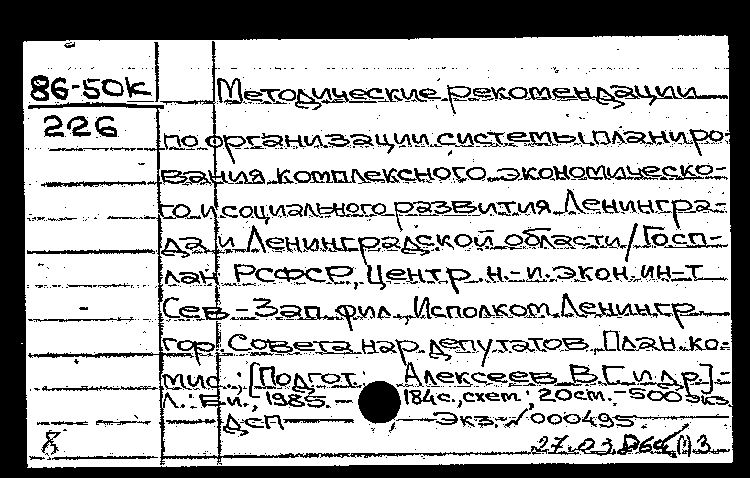 86-50к Методические рекомендации
226 по организации системы планиро-
вания комплексного экономическо-
го и социального развития Ленингра-
да и Ленинградской области/Госп-
лан РСФСР, Центр. н.-и. экон. ин-т
Сев.-Зап. фил., Исполком Ленингр.
гор. Совета нар. депутатов, План. ко-
мис.; [Подгот.: Алексеев В.Г. и др.].-
Л.: Б.и., 1985.- 184с., схем.; 20см.-500экз.
ДСП Экз. 000495.
8 27.03.86